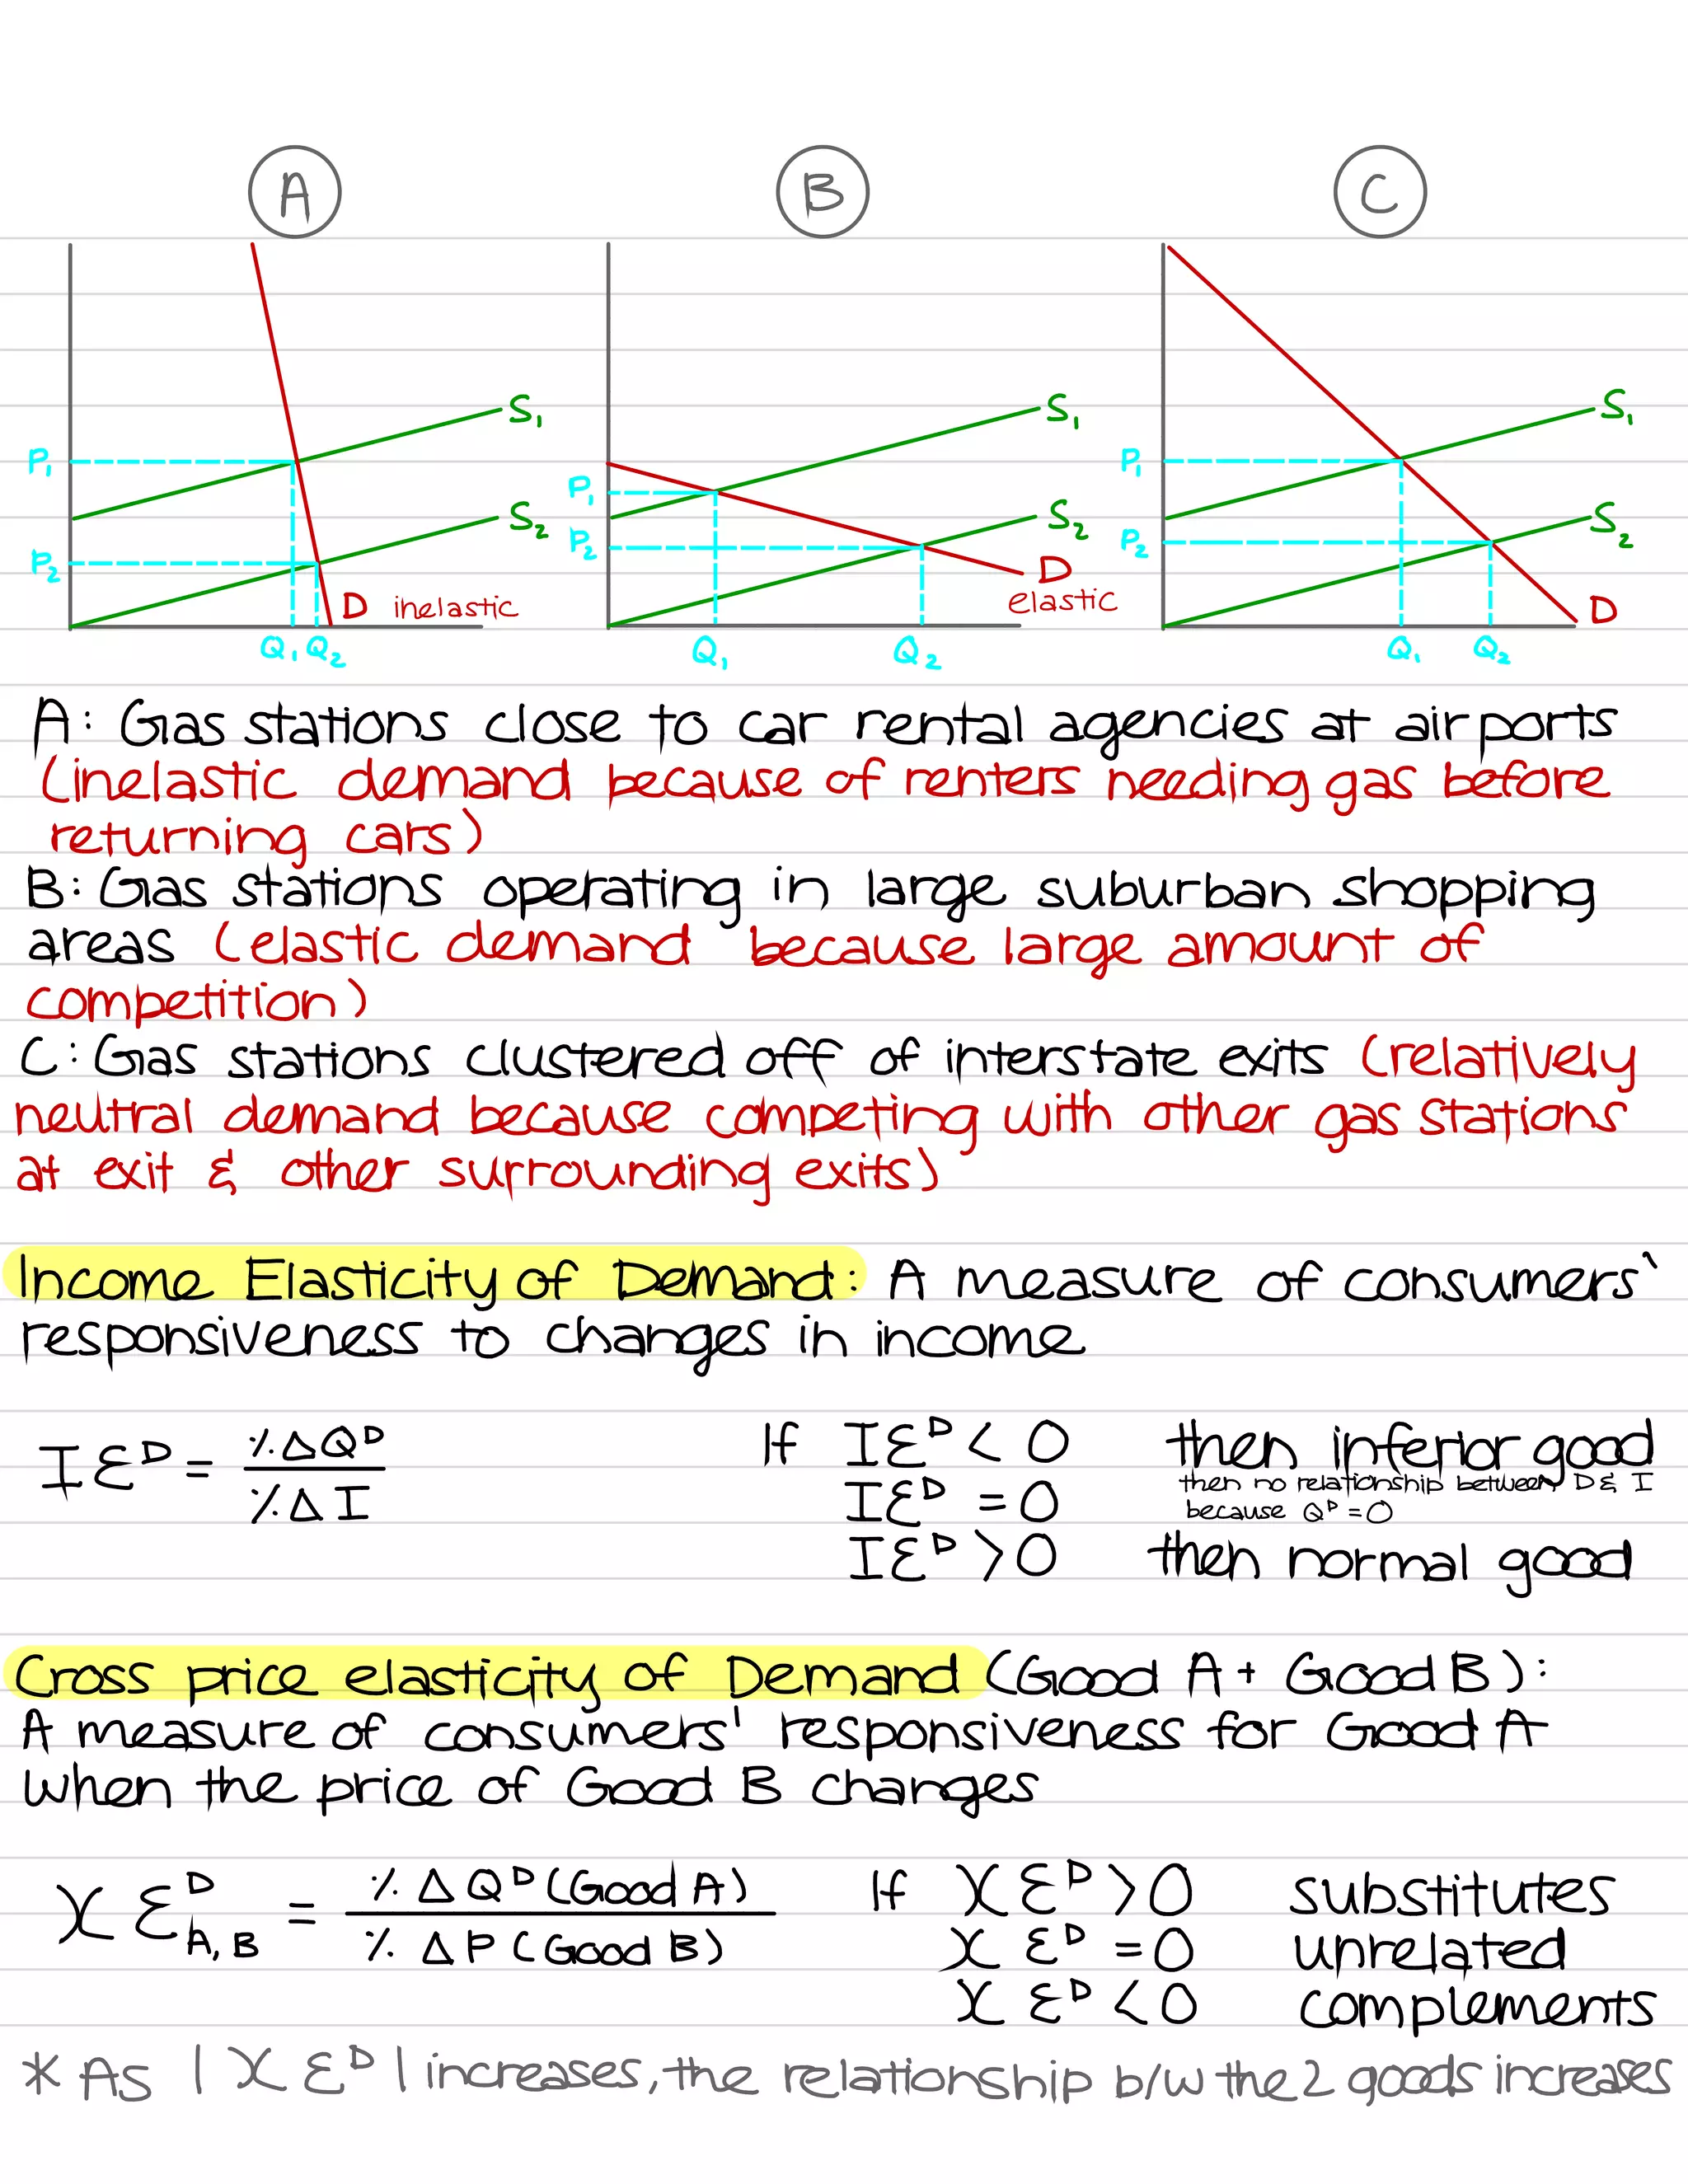 A B C
S₁ S₁ S₁
P₁ P₁ P₁
S₂ S₂ S₂
P₂ P₂ P₂
D inelastic D D
elastic
Q₁ Q₂ Q₁ Q₂ Q₁ Q₂
A: Gas stations close to car rental agencies at airports
(inelastic demand because of renters needing gas before
returning cars)
B: Gas stations operating in large suburban shopping
areas (elastic demand because large amount of
competition)
C: Gas stations clustered off of interstate exits (relatively
neutral demand because competing with other gas stations
at exit & other surrounding exits)
Income Elasticity of Demand: A measure of consumers'
responsiveness to changes in income
IƐᴰ = %ΔQᴰ / %ΔI
If IƐᴰ < 0 then inferior good
IƐᴰ = 0 then no relationship between D & I
because Qᴰ = 0
IƐᴰ > 0 then normal good
Cross price elasticity of Demand (Good A + Good B):
A measure of consumers' responsiveness for Good A
when the price of Good B changes
XƐᴰ A,B = % ΔQᴰ (Good A) / % ΔP (Good B)
If XƐᴰ > 0 substitutes
XƐᴰ = 0 unrelated
XƐᴰ < 0 complements
* As |XƐᴰ| increases, the relationship b/w the 2 goods increases